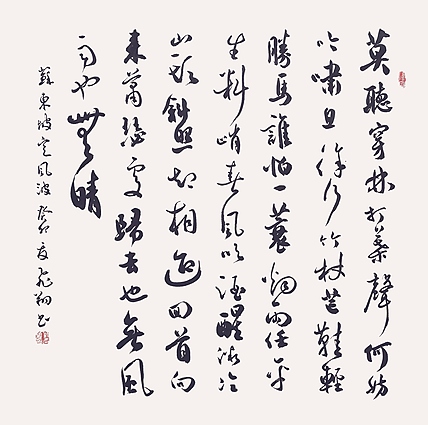 莫聽穿林打葉聲何妨
吟嘯且徐行竹杖芒鞋輕
勝馬誰怕一蓑烟雨任平
生料峭春風吹酒醒微冷
山頭斜照却相迎回首向
來蕭瑟處歸去也無風
雨也無晴
蘇東坡定風波癸卯夏飛翔书